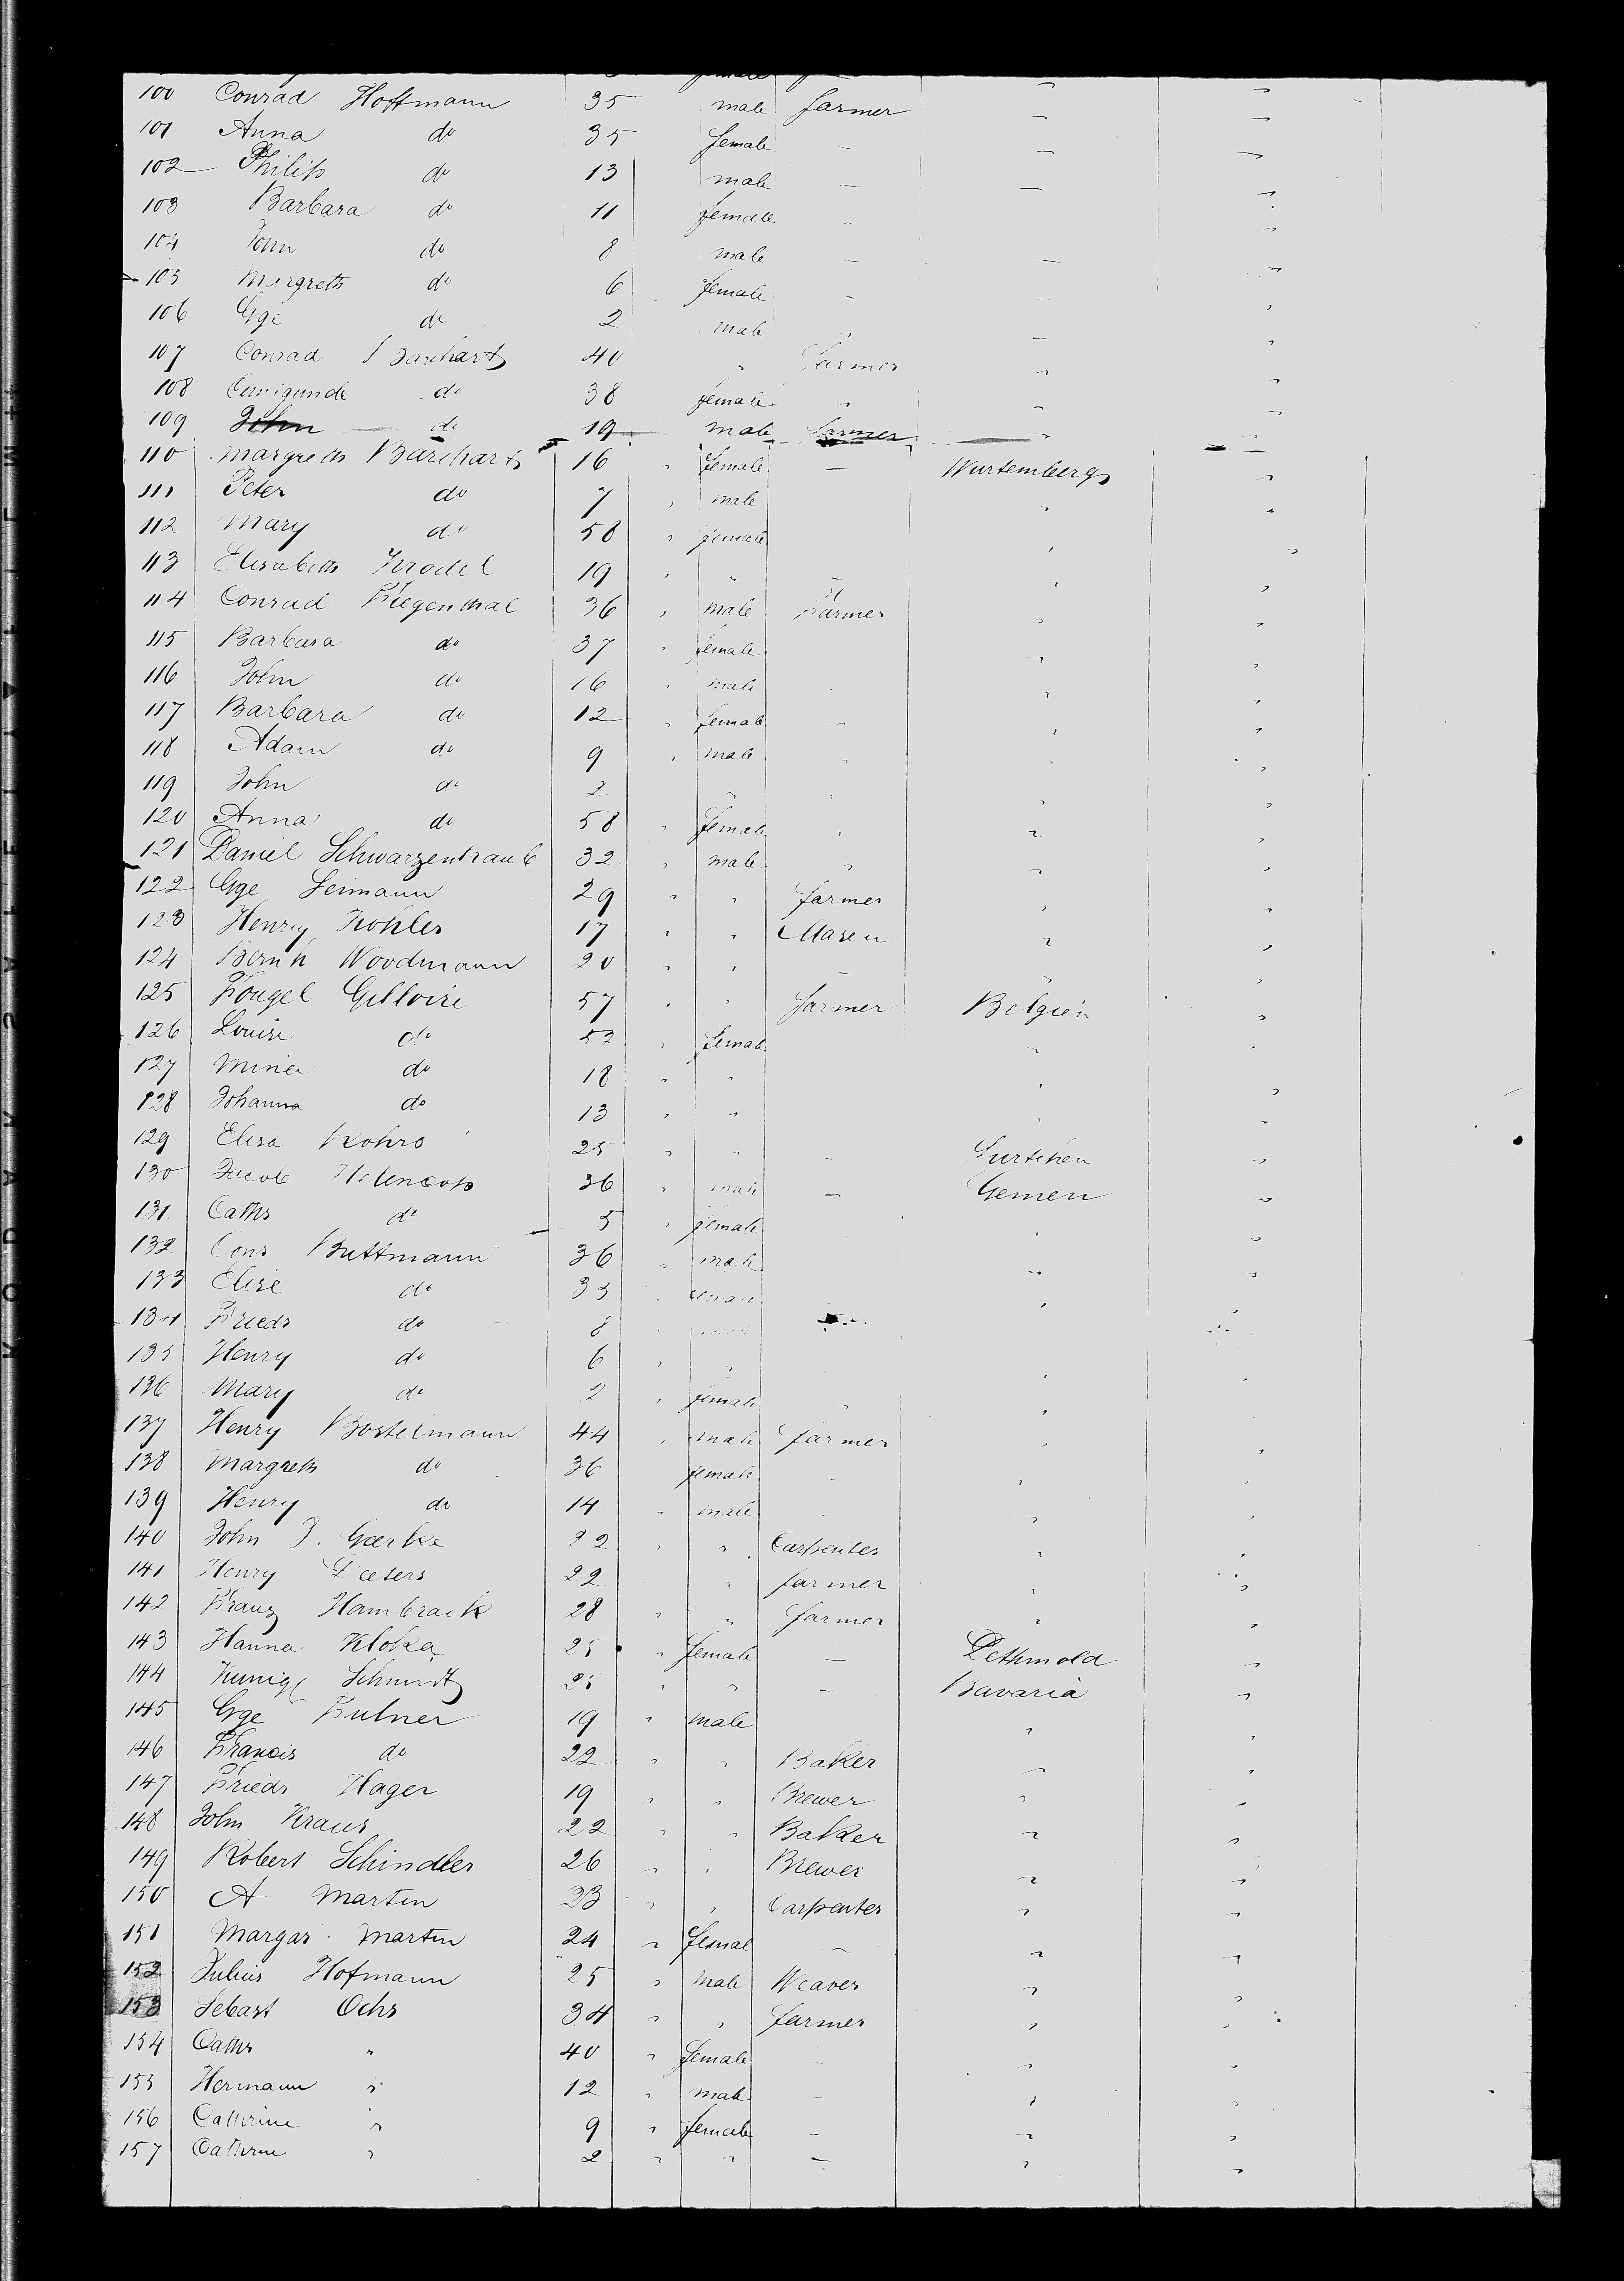 100 Conrad Hoffmann 35 male farmer
101 Anna do 35 female —
102 Philip do 13 male —
103 Barbara do 11 female
104 John do 8 male —
105 Margreth do 6 female
106 Gge do 2 male
107 Conrad Barchart 40 " Farmer
108 Cunigunde do 38 female
109 John do 19 male farmer
110 Margreth Barchart 16 " female — Wurtemberg
111 Peter do 7 " male "
112 Mary do 58 " female "
113 Elisabeth Krodel 19 " " — "
114 Conrad Fiegenthal 36 " male Farmer "
115 Barbara do 37 " female "
116 John do 16 " male "
117 Barbara do 12 " female "
118 Adam do 9 " male "
119 John do 2 " "
120 Anna do 58 " female "
121 Daniel Schwarzentraub 32 " male "
122 Gge Leimann 29 " " farmer "
123 Henry Kohler 17 " " "
124 Bernh Woodmann 20 " " — "
125 Gilloire 57 " " farmer Belgien "
126 Louise do 52 " female "
127 Mina do 18 " " "
128 Johanna do 13 " " "
129 Elisa Rohrs 25 " " — "
130 Jacob 36 " male — "
131 Cathr do 5 " female "
132 Conr Buttmann 36 " male "
133 Elise do 33 female "
134 Friedr do 8
135 Henry do 6 " "
136 Mary do 2 " female "
137 Henry Bostelmann 44 " male farmer "
138 Margreth do 36 female "
139 Henry do 14 " male "
140 John J. Gaerke 22 " " Carpenter "
141 Henry 22 " farmer "
142 Franz Hambrack 28 " " farmer "
143 Hanna Kloke 25 " female — Dethmold "
144 Kunig Schmidt 25 " " — Bavaria "
145 Gge Fulner 19 " male "
146 Francis do 22 " " Baker "
147 Friedr Hager 19 " " Brewer "
148 John Kraus 22 " " Baker "
149 Robert Schindler 26 " " Brewer "
150 A Martin 23 " " Carpenter "
151 Margar. Martin 24 " femal — "
152 Julius Hofmann 25 " male Weaver "
153 Sebast Ochs 34 " " farmer "
154 Cathr " 40 " female "
155 Hermann " 12 " male — "
156 Cathrine " 9 " female — "
157 Cathrine " 2 " " — "